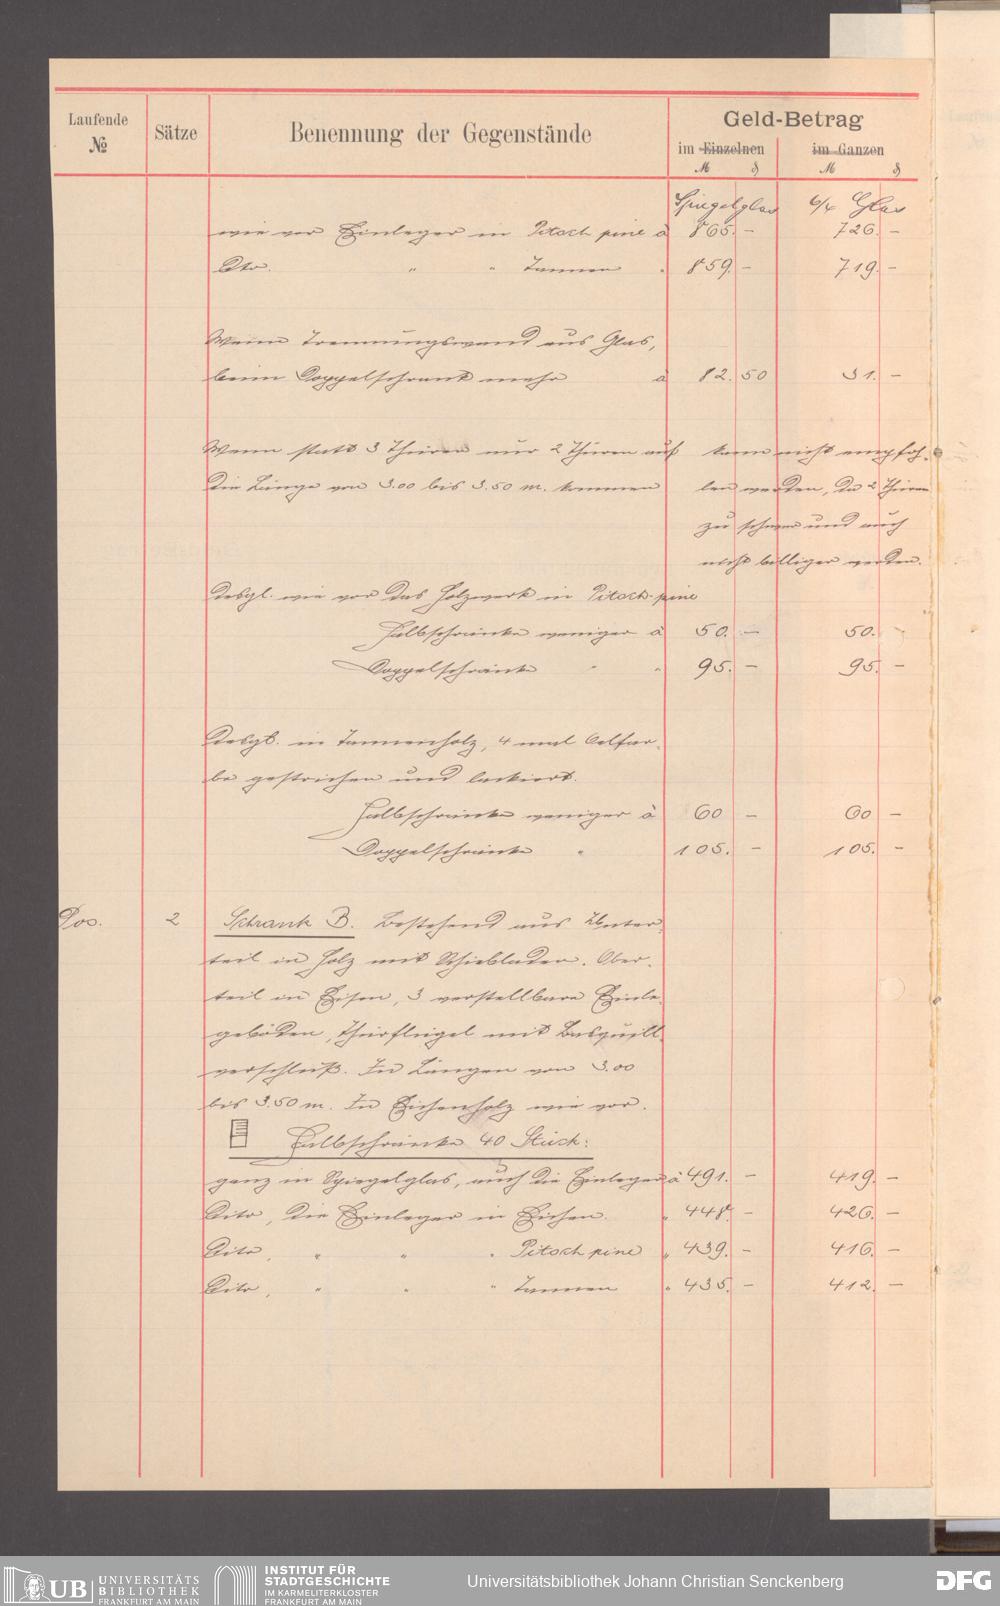 Laufende
№
Sätze
Benennung der Gegenstände
Geld-Betrag
im Einzelnen
im Ganzen
M ₰ M ₰
Spiegelglas 6/4 Glas
wie vor Einleger in Pitsch pine à 865. – 726. –
Dto. " " Tannen " 859. – 719. –
Trennungswand aus Glas,
beim Doppelschrank mehr à 82. 50 31. –
Wenn statt 3 Thüren nur 2 Thüren auf kann nicht empfoh-
die Länge von 3.00 bis 3.50 m. kommen len werden, da 2 Thüren
zu schwer und auch
nicht billiger werden.
desgl. wie vor das Holzwerk in Pitsch-pine
Halbschränke weniger à 50. – 50. –
Doppelschränke " " 95. – 95. –
desgl. in Tannenholz, 4 mal Oelfar-
be gestrichen und lackiert.
Halbschränke weniger à 60 – 60 –
Doppelschränke " 105. – 105. –
Pos. 2 Schrank B. Bestehend aus Unter-
teil in Holz mit Schiebladen. Ober-
teil in Eisen, 3 verstellbare Einle-
geböden, Thürflügel mit Basquill-
verschluß. In Längen von 3.00
bis 3.50 m. In Eichenholz wie vor.
Halbschränke 40 Stück:
ganz in Spiegelglas, auch die Einleger à 491. – 419. –
Dito, die Einleger in Eichen. " 448. – 426. –
Dito, " " " Pitsch pine " 439. – 416. –
Dito, " " " Tannen " 435. – 412. –
UB UNIVERSITÄTS
BIBLIOTHEK
FRANKFURT AM MAIN
INSTITUT FÜR
STADTGESCHICHTE
IM KARMELITERKLOSTER
FRANKFURT AM MAIN
Universitätsbibliothek Johann Christian Senckenberg
DFG